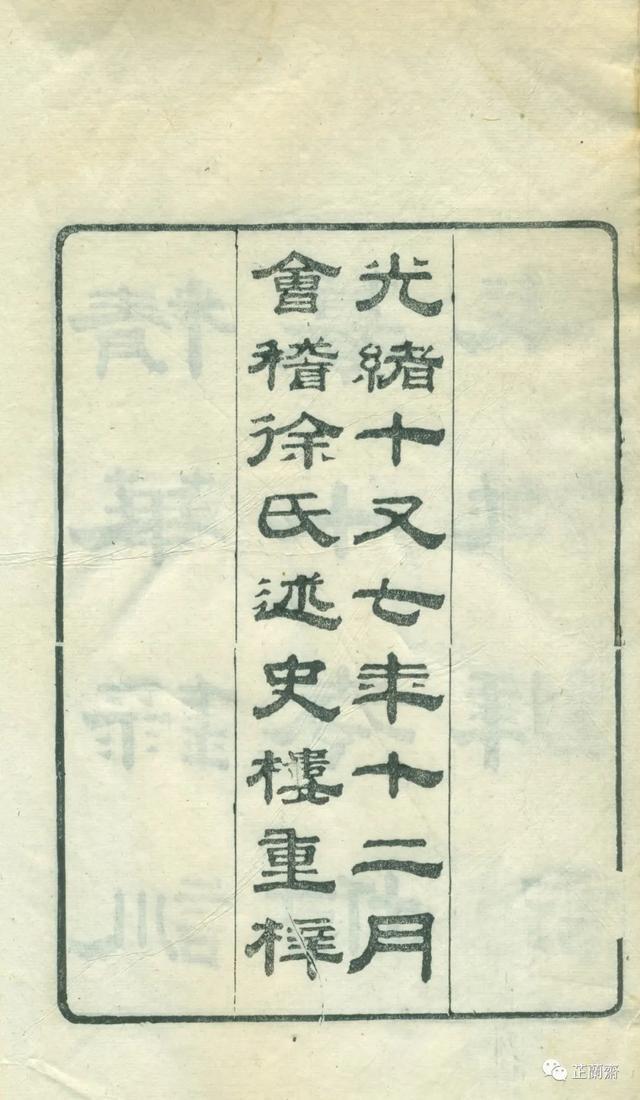 光緒十又七年十二月
會稽徐氏述史樓重梓
芷蘭齋